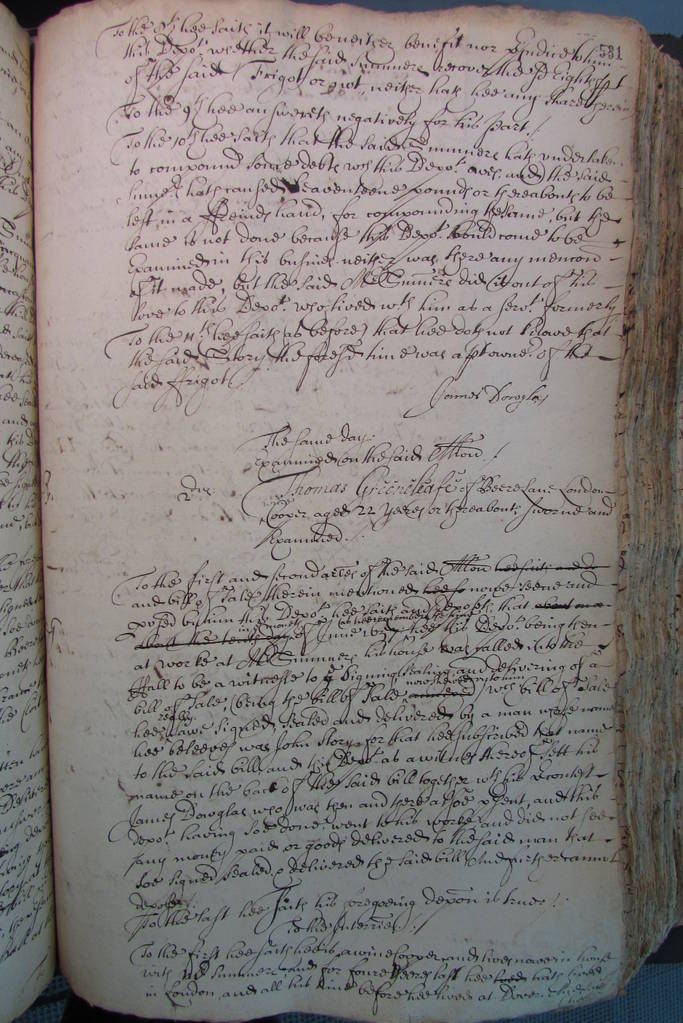 531
To the 8th hee saith it will be neither benefit nor prejudice to him
this Depot. whether the said Summers recover the sd Eighth pt
of the said Frigot or not, neither hath hee any share therein
To the 9th hee answereth negatively for his part./
To the 10th hee saith that the said Summers hath undertaken
to compound some debts wch this Depot. owes, and the said
Summers hath caused seaventeene pounds or thereabouts to be
left in a freinds hand, for compounding the same, but the
same is not done because this Depot. should come to be
Examined in this busines, neither was there any mencon
of it made, but the said Mr Summers did it out of his
love to this Depot. who lived with him as a servt. formerly
To the 11th hee saith (as before) that hee doth not knowe that
the said Story the foresd time was a pt owner of the
said ffrigot
James Douglas
The same day.
Examined on the said Allon./
2 Thomas Greenehalfe of Beere Lane London
Wine
Cooper aged 22 yeeres or thereabouts sworne and
Examined./.
To the first and second arles of the said Allon hee saith and
and bill of Sale therein mentioned now seene and
pervsed by him this Depot. hee saith and deposeth that about
about the day of June hee this Depot. being then
at worke at Mr Summers his house was called into the
Hall to be a witnesse to the Signing Sealing and delivering of a
bill of Sale (being the bill of Sale now shewed unto him) wch bill of Sale
really
hee sawe signed, sealed and delivered by a man whose name
hee beleeves was John Story, for that hee subscribed that name
to the said bill, and this Depot. as a witnes thereof sett his
name on the back of the said bill together with his Contest
James Douglas who was then and there also present, and this
depot. having soe done, went to his worke and did not see
any money paid or goods delivered to the said man that
soe signed sealed & delivered the said bill And further cannot
depose.
To the last hee saith his foregoeing depon is true./.
To the Interries./
To the first hee saith hee is a wine Cooper and lives nowe in house
with Mr Summers and for foure yeeres last hee hath lived
in London, and all his time before hee lived at Dover